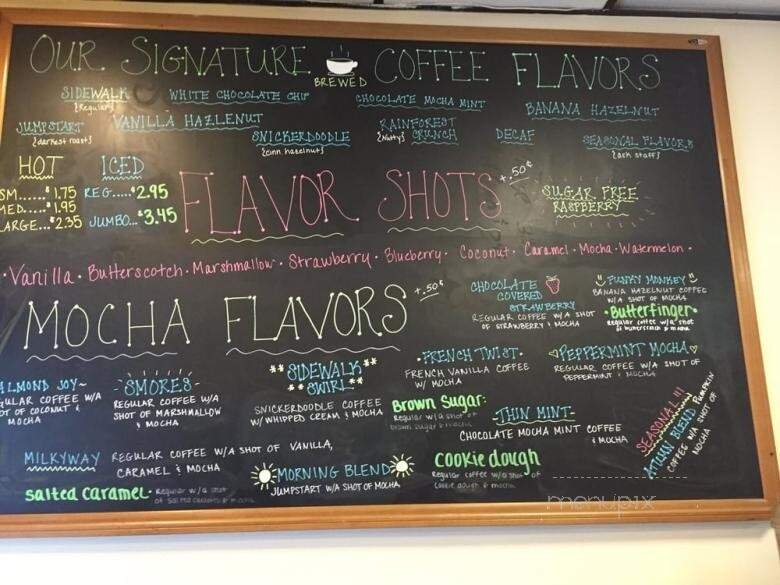 OUR SIGNATURE BREWED COFFEE FLAVORS
SIDEWALK WHITE CHOCOLATE CHIP CHOCOLATE MOCHA MINT BANANA HAZELNUT
{Regular}
JUMPSTART VANILLA HAZLENUT SNICKERDOODLE RAINFOREST CRUNCH DECAF SEASONAL FLAVORS
{darkest roast} {cinn hazelnut} {Nutty} {ask staff}
HOT ICED
SM......$1.75 REG.....$2.95
MED....$1.95 JUMBO...$3.45
LARGE...$2.35
FLAVOR SHOTS +.50¢
SUGAR FREE
RASPBERRY
Vanilla · Butterscotch · Marshmallow · Strawberry · Blueberry · Coconut · Caramel · Mocha · Watermelon ·
MOCHA FLAVORS +.50¢
CHOCOLATE
COVERED
STRAWBERRY
REGULAR COFFEE W/A SHOT
OF STRAWBERRY & MOCHA
FUNKY MONKEY
BANANA HAZELNUT COFFEE
W/A SHOT OF MOCHA
· Butterfinger ·
Regular coffee w/a shot
of butterscotch & mocha
ALMOND JOY~
REGULAR COFFEE W/A
SHOT OF COCONUT &
MOCHA
~SMORES~
REGULAR COFFEE W/A
SHOT OF MARSHMALLOW
& MOCHA
SIDEWALK
SWIRL
SNICKERDOODLE COFFEE
W/WHIPPED CREAM & MOCHA
· FRENCH TWIST ·
FRENCH VANILLA COFFEE
W/ MOCHA
PEPPERMINT MOCHA
REGULAR COFFEE W/A SHOT OF
PEPPERMINT & MOCHA
Brown Sugar:
Regular w/a shot of
brown sugar & mocha
-THIN MINT-
CHOCOLATE MOCHA MINT COFFEE
& MOCHA
SEASONAL!!!
AUTUMN BLEND PUMPKIN
COFFEE W/A SHOT OF
MOCHA
MILKYWAY REGULAR COFFEE W/A SHOT OF VANILLA,
CARAMEL & MOCHA
MORNING BLEND
JUMPSTART W/A SHOT OF MOCHA
cookie dough
Regular coffee w/a shot of
cookie dough & mocha
salted caramel· Regular w/a shot
of salted caramel & mocha
menupix